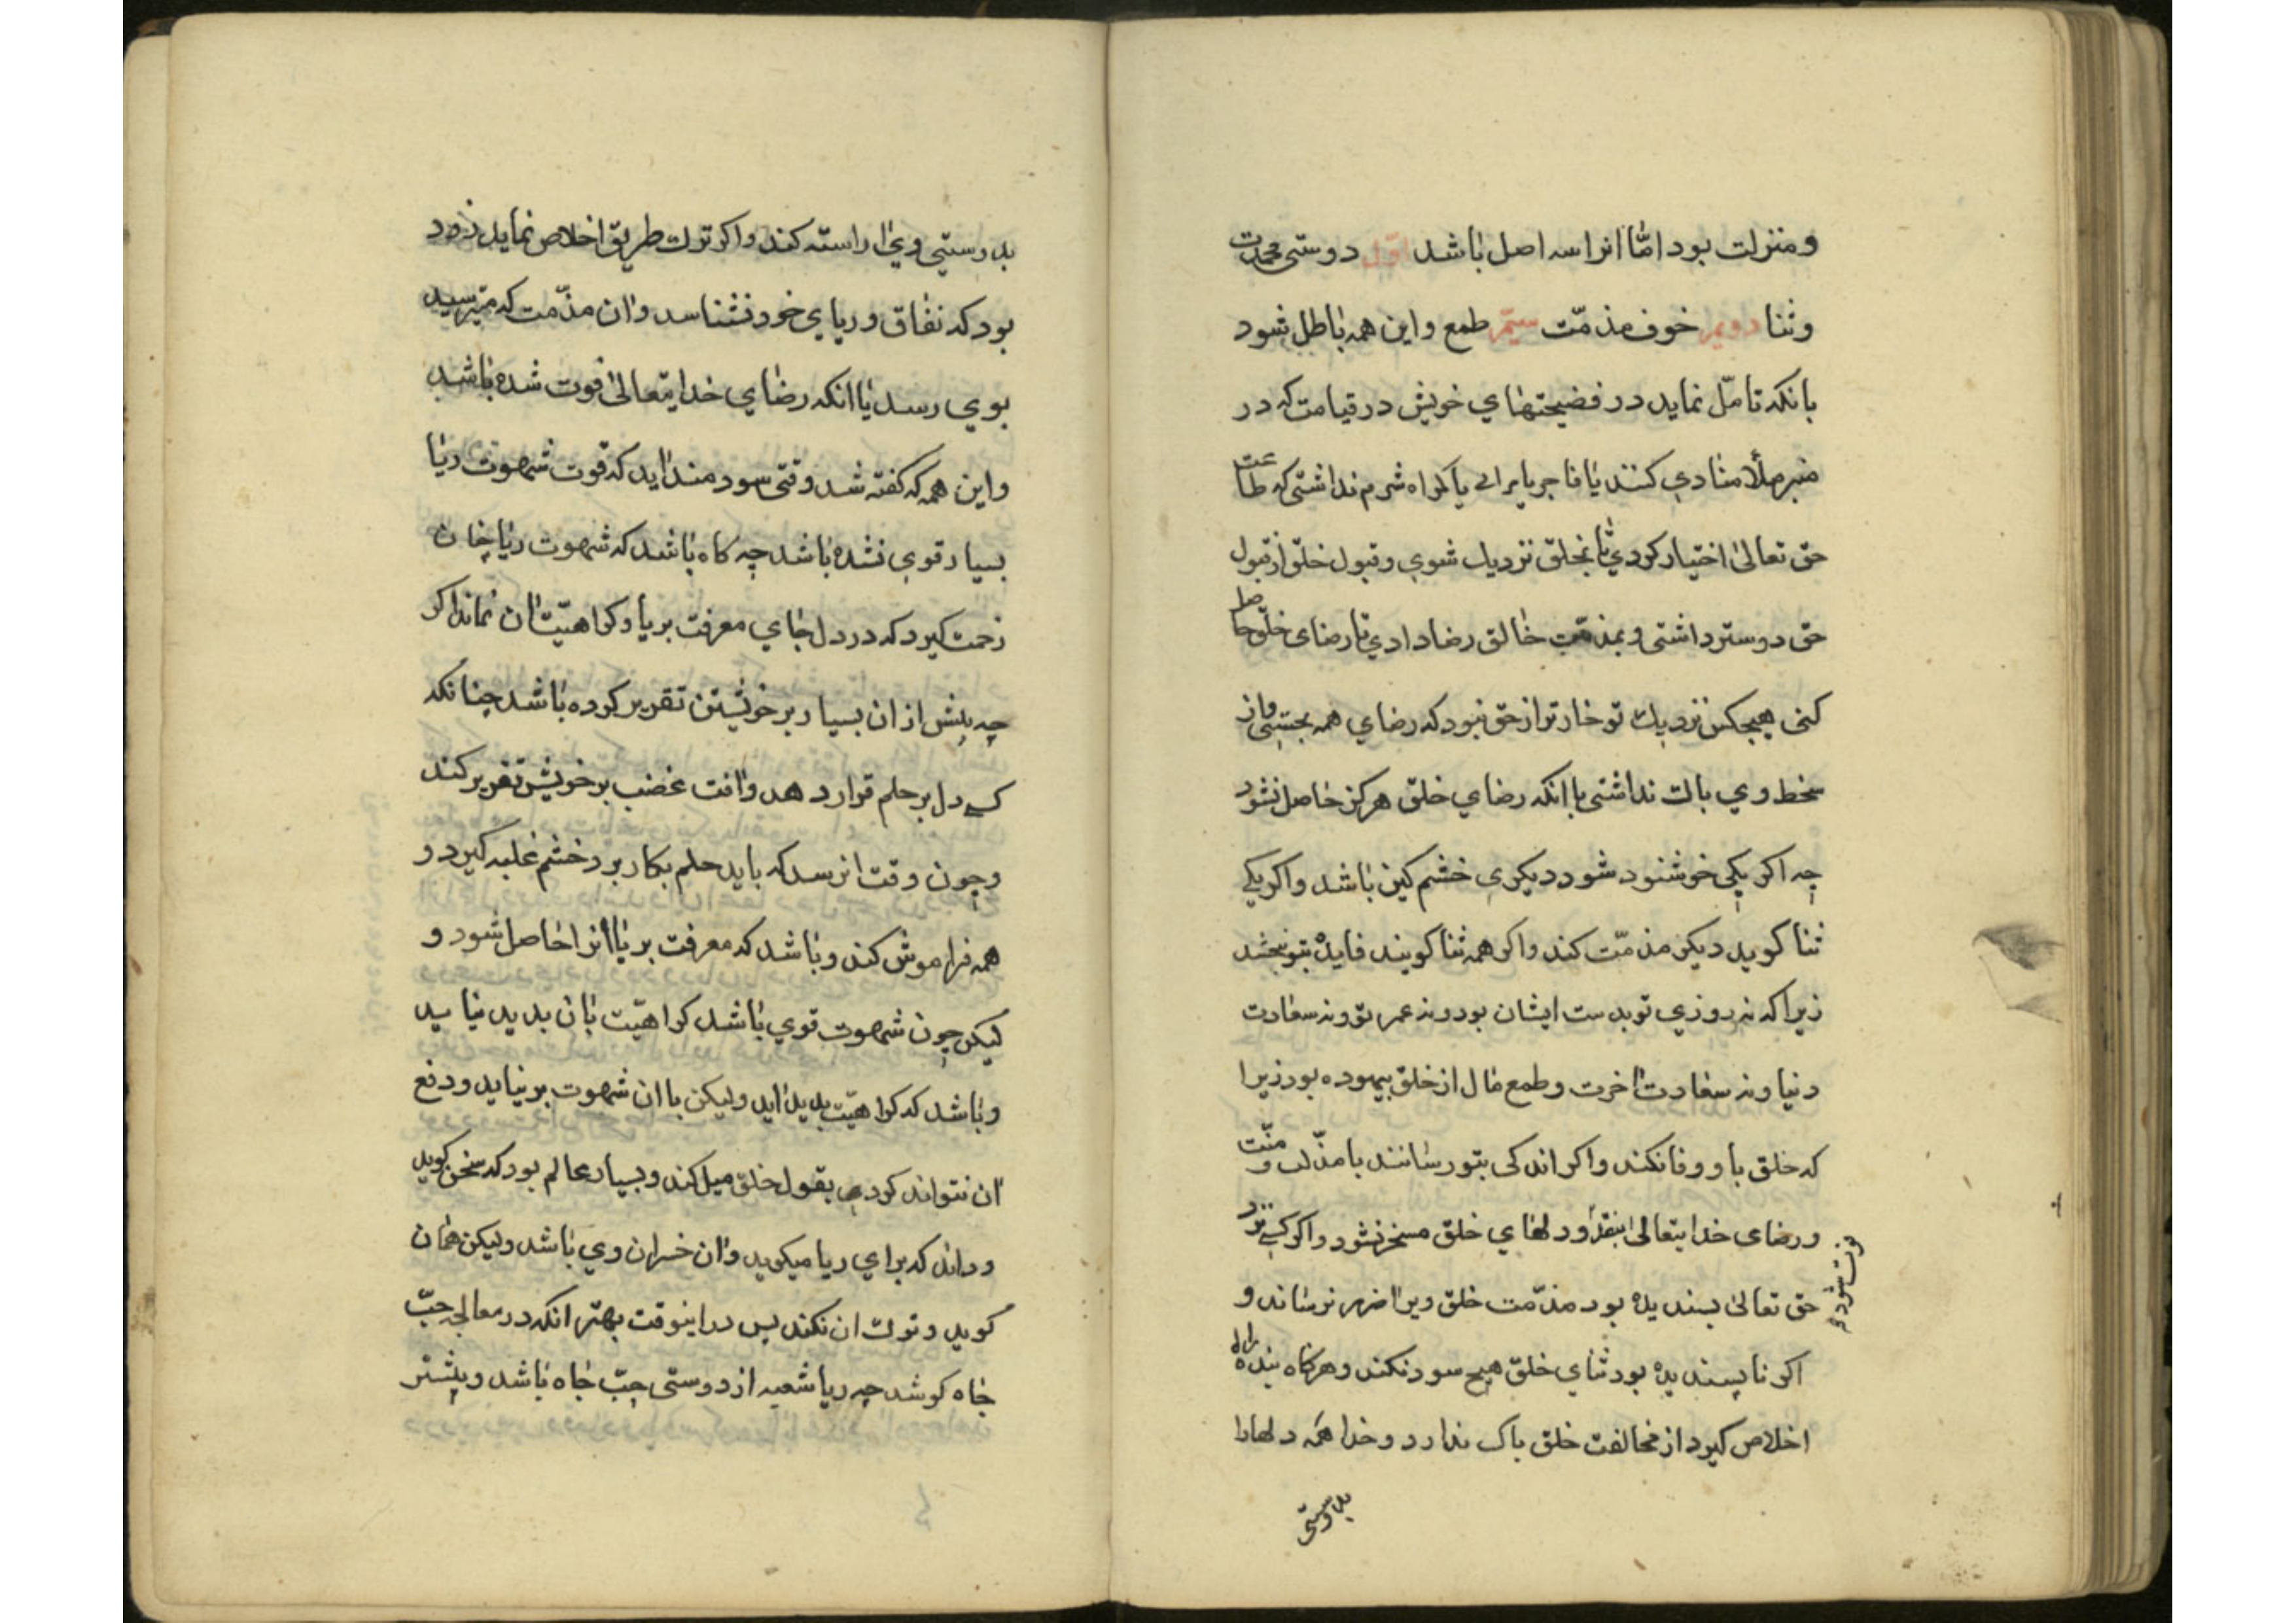 ومنزلت بود امّا انرا سه اصل باشد اوّل دوستی محمدت
وثنا دویم خوف مذمّت سیّم طمع و این همه باطل شود
بانکه تامّل نماید در فضیحتهای خویش در قیامت که در
منبر ملأ منادی کنند یا فاجر یا مرائی یا کمراه شرم نداشتی که طاعت
حق تعالیٰ اختیار کردی تا بخلق نزدیک شوی وقبول خلق از قبول
حق دوستر داشتی وبمذمّت خالق رضا دادی تا رضای خلق حاصل
کنی هیچکس نزدیک تو خارتر از حق نبود که رضای همه بجستی واز
سخط وی باک نداشتی با انکه رضای خلق هرکز حاصل نشود
چه اکر یکی خوشنود شود دیکری خشم کین باشد واکر یکی
ثنا کوید دیکر مذمّت کند واکر همه ثنا کویند فایده بتو نبخشد
زیرا که نه روزی تو بدست ایشان بود ونه عمر تو ونه سعادت
دنیا ونه سعادت اخرت وطمع مال از خلق بیهوده بود زیرا
که خلق باو وفا نکنند واکر اندکی بتو رسانند با مذلت ومنّت
ورضای خدایتعالیٰ بنقد فوت شود و دلهای خلق مسخر نشود واکر کسی نزد
حق تعالیٰ پسندیده بود مذمّت خلق ویرا ضرر نرساند و
اکر ناپسندیده بود ثنای خلق هیچ سود نکند وهرکاه بنده راه
اخلاص کیرد از مخالفت خلق باک ندارد وخدا همه دلها را
بدوستی
بدوستی وی اراسته کند واکر ترک طریق اخلاص نماید زود
بود که نفاق وریای خود نشناسد وان مذّمت که میترسید
بوی رسد یا انکه رضای خدایتعالیٰ فوت شده باشد
واین همه که کفته شد وقتی سودمند اید که قوت شهوت ریا
بسیار قوی نشده باشد چه کاه باشد که شهوت ریا چنان
زحمت کیرد که در دل جای معرفت بریا وکراهیّت ان نماند اکر
چه پیش از ان بسیار بر خویشتن تقریر کرده باشد چنانکه
کسی دل بر حلم قرار دهد وافت غضب بر خویش تقریر کند
وچون وقت ان رسد که باید حلم بکار برد خشم غلبه کیرد و
همه فراموش کند وباشد که معرفت بریا انرا حاصل شود و
لیکن چون شهوت قوی باشد کراهیّت بان بدید نیاید
وباشد که کراهیّت بدید اید ولیکن با ان شهوت برنیاید ودفع
ان نتواند کرد بقبول خلق میل کند وبسیار عالم بود که سخن کوید
وداند که برای ریا میکوید وان خسران وی باشد ولیکن همان
کوید وترک ان نکند پس در اینوقت بهتر انکه در معالجه حبّ
جاه کوشد چه ریا شعبه از دوستی حبّ جاه باشد وبیشتر